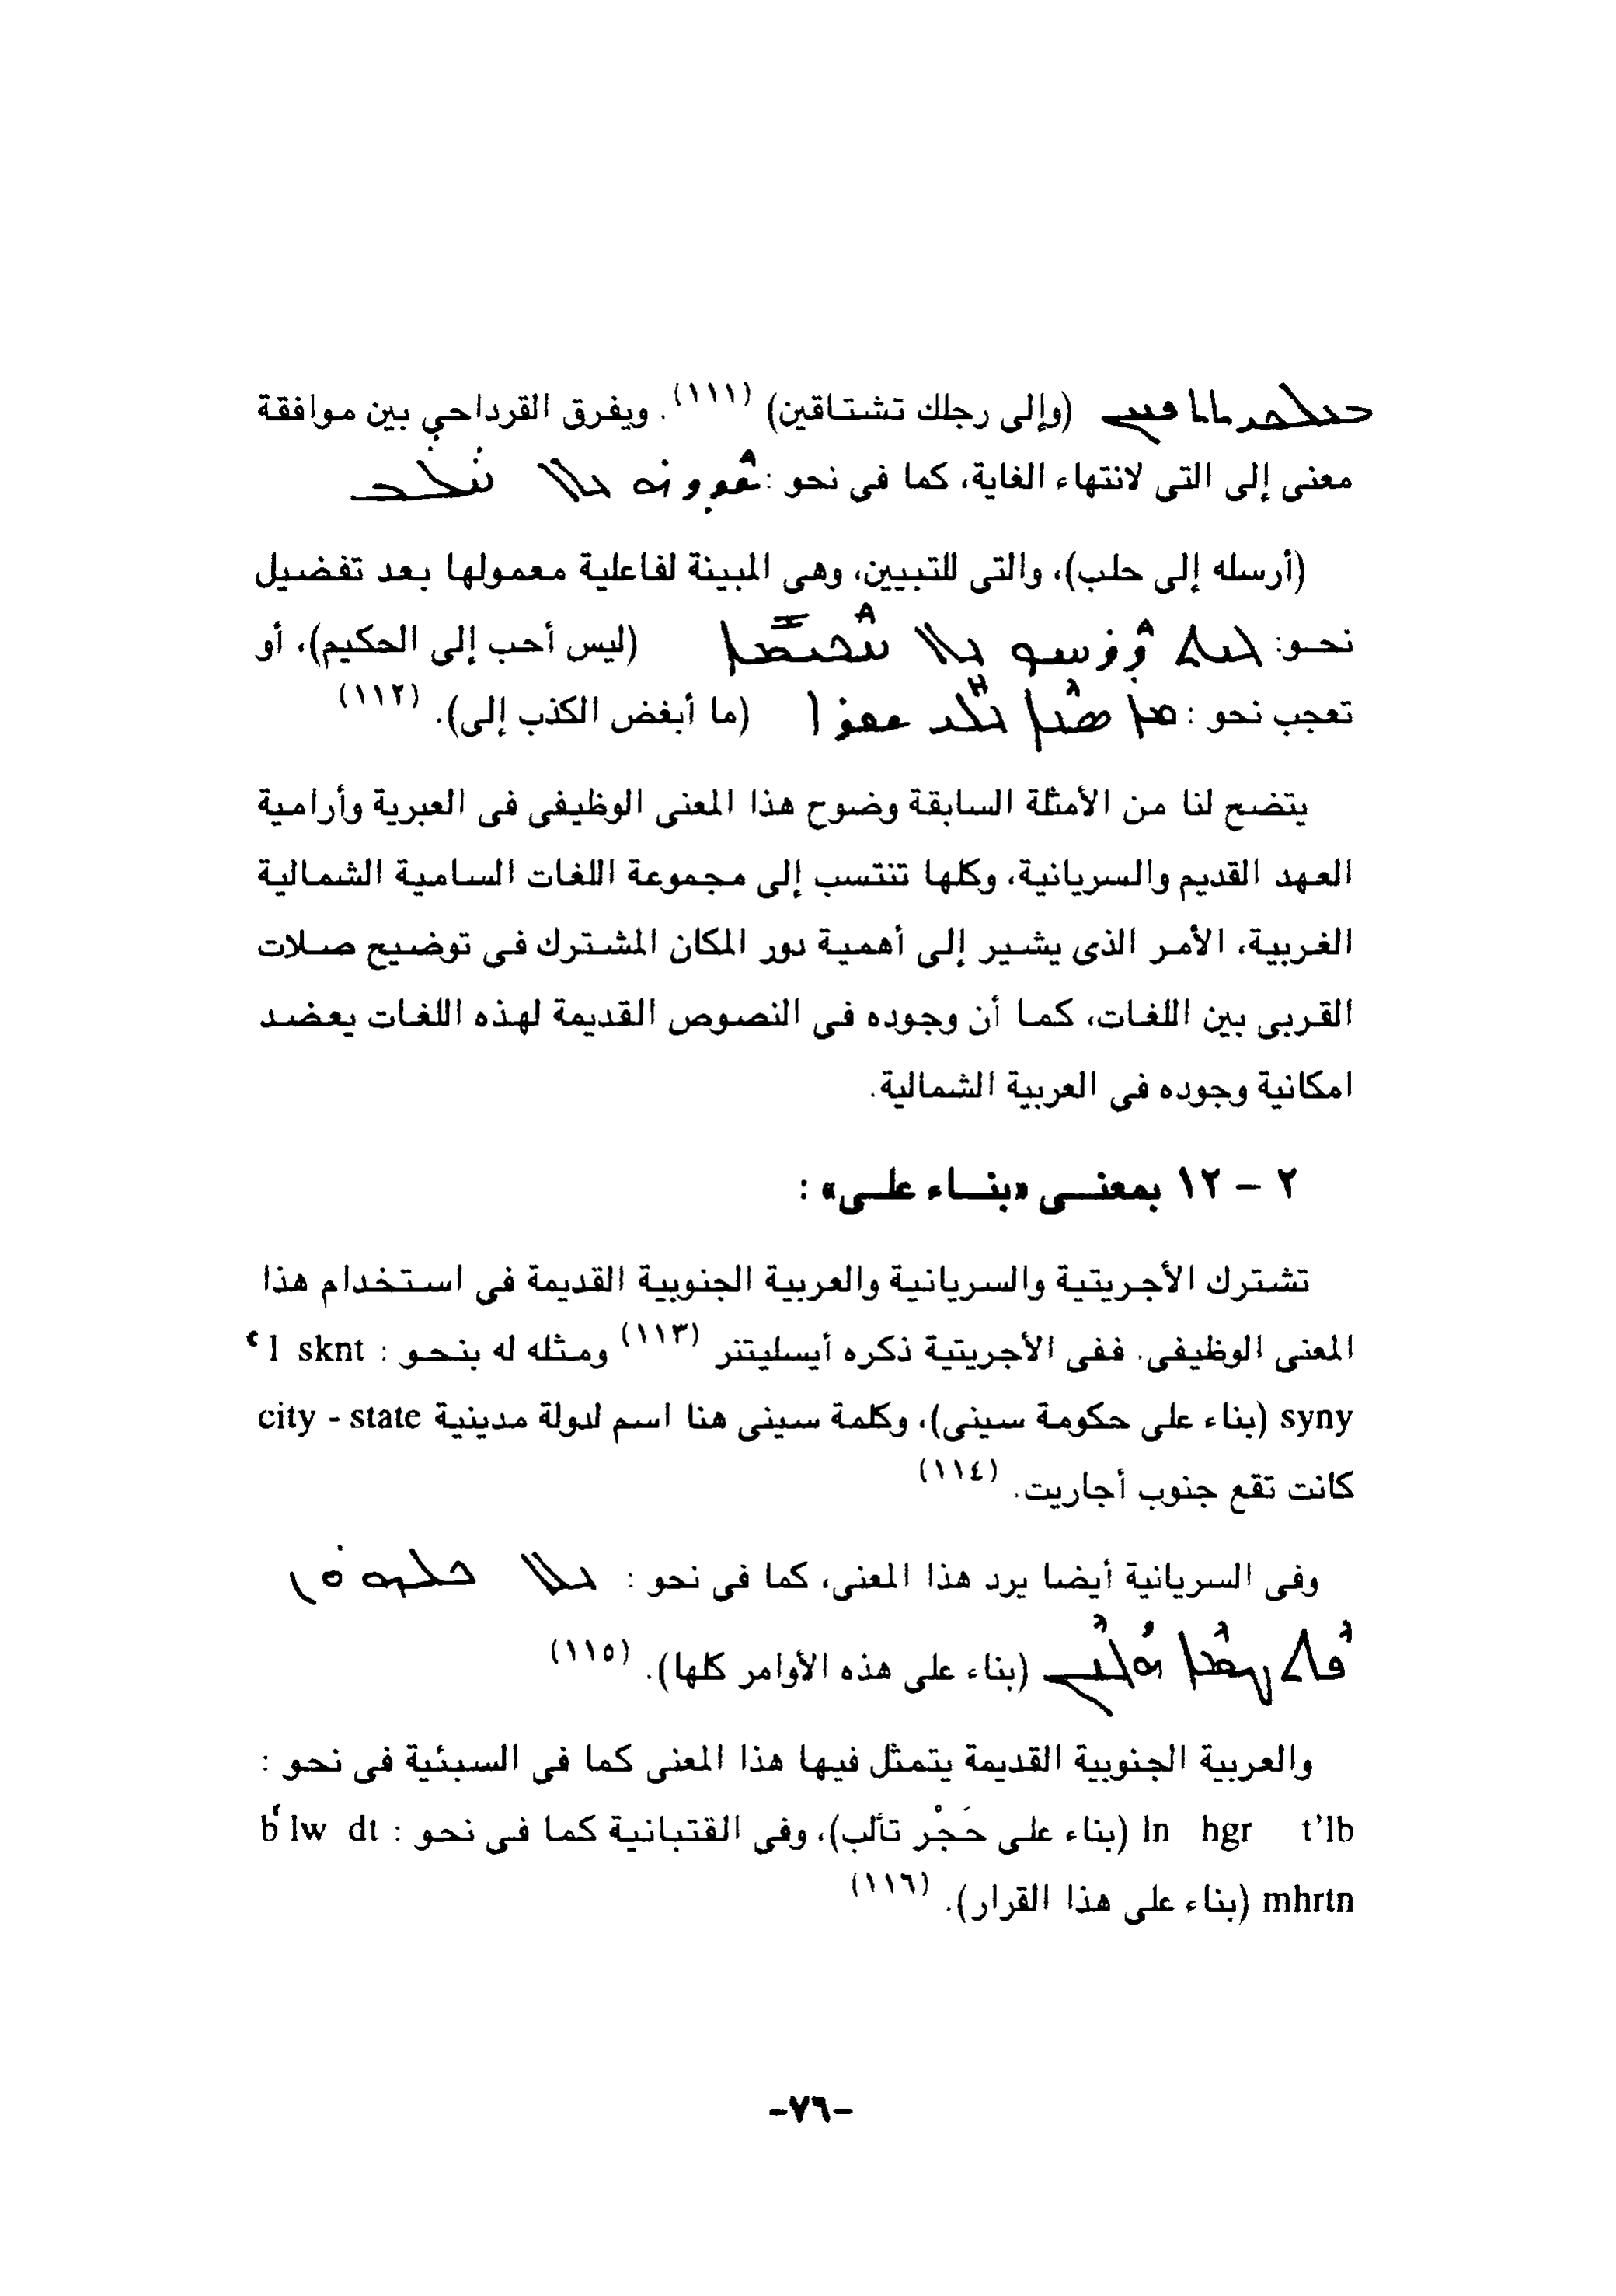 (وإلى رجلك تشتاقين) (١١١). ويفرق القرداحي بين موافقة
معنى إلى التى لانتهاء الغاية، كما فى نحو :
(أرسله إلى حلب)، والتى للتبيين، وهى المبينة لفاعلية معمولها بعد تفضيل
نحو: (ليس أحب إلى الحكيم)، أو
تعجب نحو : (ما أبغض الكذب إلى). (١١٢)
يتضح لنا من الأمثلة السابقة وضوح هذا المعنى الوظيفى فى العبرية وأرامية
العهد القديم والسريانية، وكلها تنتسب إلى مجموعة اللغات السامية الشمالية
الغربية، الأمر الذى يشير إلى أهمية دور المكان المشترك فى توضيح صلات
القربى بين اللغات، كما أن وجوده فى النصوص القديمة لهذه اللغات يعضد
امكانية وجوده فى العربية الشمالية.
٢ – ١٢ بمعنى «بناء على» :
تشترك الأجريتية والسريانية والعربية الجنوبية القديمة فى استخدام هذا
المعنى الوظيفى. ففى الأجريتية ذكره أيسليتنر (١١٣) ومثله له بنحو : ʿl sknt
syny (بناء على حكومة سينى)، وكلمة سينى هنا اسم لدولة مدينية city - state
كانت تقع جنوب أجاريت. (١١٤)
وفى السريانية أيضا يرد هذا المعنى، كما فى نحو :
(بناء على هذه الأوامر كلها). (١١٥)
والعربية الجنوبية القديمة يتمثل فيها هذا المعنى كما فى السبئية فى نحو :
ln hgr t'lb (بناء على حَجْر تألب)، وفى القتبانية كما فى نحو : bʿlw dt
mhrtn (بناء على هذا القرار). (١١٦)
-٧٦-